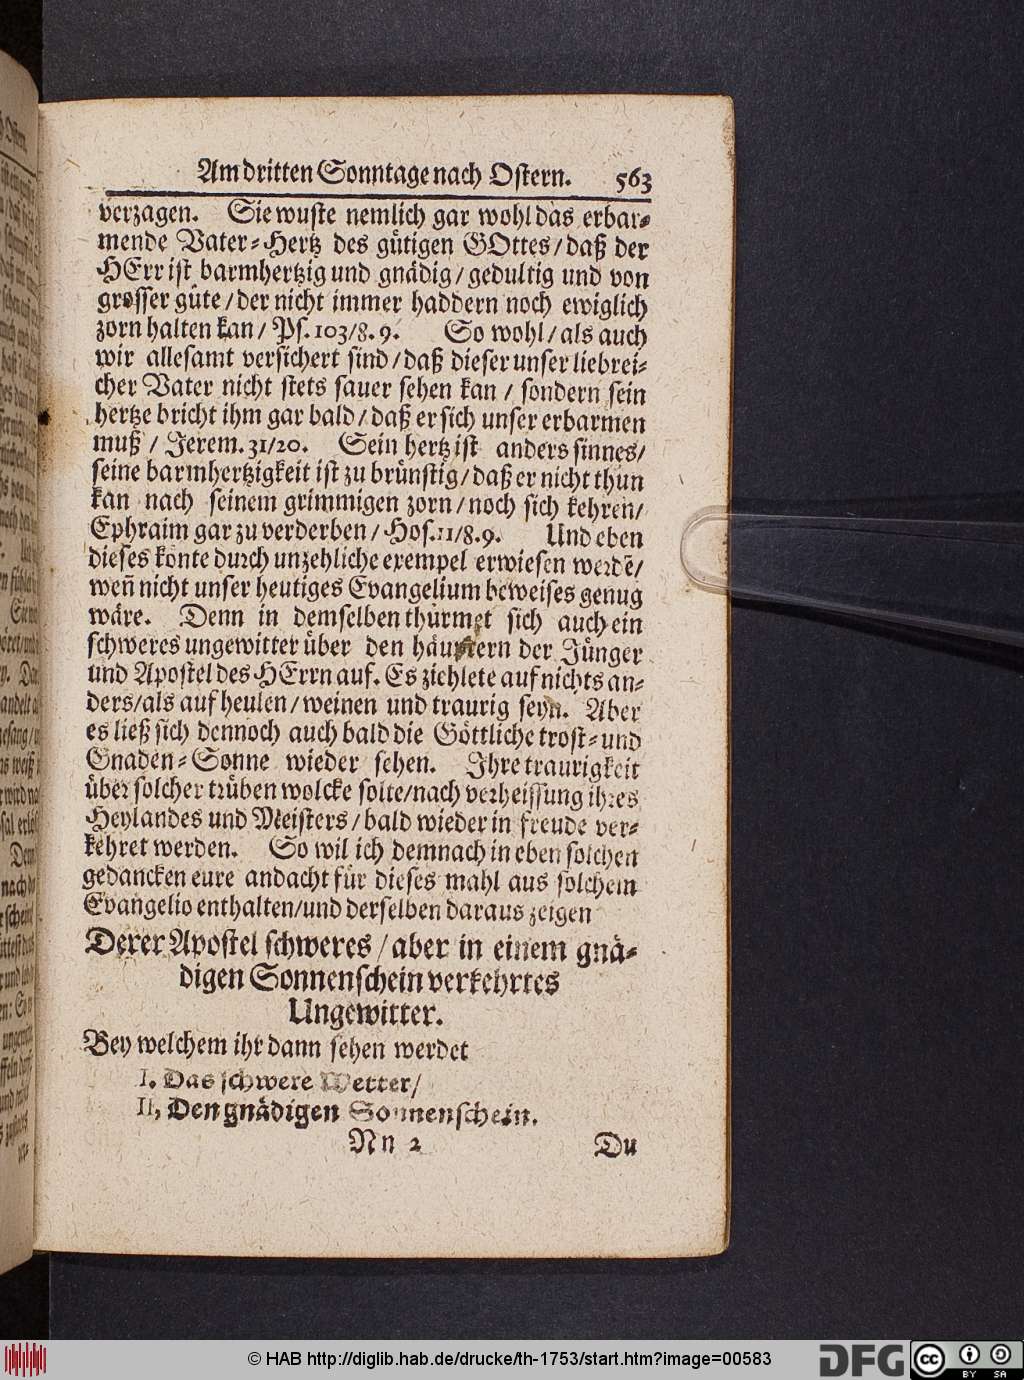 Am dritten Sonntage nach Ostern. 563
verzagen. Sie wuste nemlich gar wohl das erbar-
mende Vater-Hertz des gütigen GOttes/ daß der
HErr ist barmhertzig und gnädig/ gedultig und von
grosser güte/ der nicht immer haddern noch ewiglich
zorn halten kan/ Ps. 103/8. 9. So wohl/ als auch
wir allesamt versichert sind/ daß dieser unser liebrei-
cher Vater nicht stets sauer sehen kan / sondern sein
hertze bricht ihm gar bald/ daß er sich unser erbarmen
muß / Jerem. 31/20. Sein hertz ist anders sinnes/
seine barmhertzigkeit ist zu brünstig/ daß er nicht thun
kan nach seinem grimmigen zorn/ noch sich kehren/
Ephraim gar zu verderben/ Hos. 11/8. 9. Und eben
dieses konte durch unzehliche exempel erwiesen werdē/
weñ nicht unser heutiges Evangelium beweises genug
wäre. Denn in demselben thürmet sich auch ein
schweres ungewitter über den häuptern der Jünger
und Apostel des HErrn auf. Es ziehlete auf nichts an-
ders/als auf heulen/ weinen und traurig seyn. Aber
es ließ sich dennoch auch bald die Göttliche trost- und
Gnaden-Sonne wieder sehen. Ihre traurigkeit
über solcher trüben wolcke solte/nach verheissung ihres
Heylandes und Meisters/ bald wieder in freude ver-
kehret werden. So wil ich demnach in eben solchen
gedancken eure andacht für dieses mahl aus solchem
Evangelio enthalten/und derselben daraus zeigen
Derer Apostel schweres / aber in einem gnä-
digen Sonnenschein verkehrtes
Ungewitter.
Bey welchem ihr dann sehen werdet
I. Das schwere Wetter/
II, Den gnädigen Sonnenschein.
Nn 2 Du
© HAB http://diglib.hab.de/drucke/th-1753/start.htm?image=00583
DFG
cc BY SA